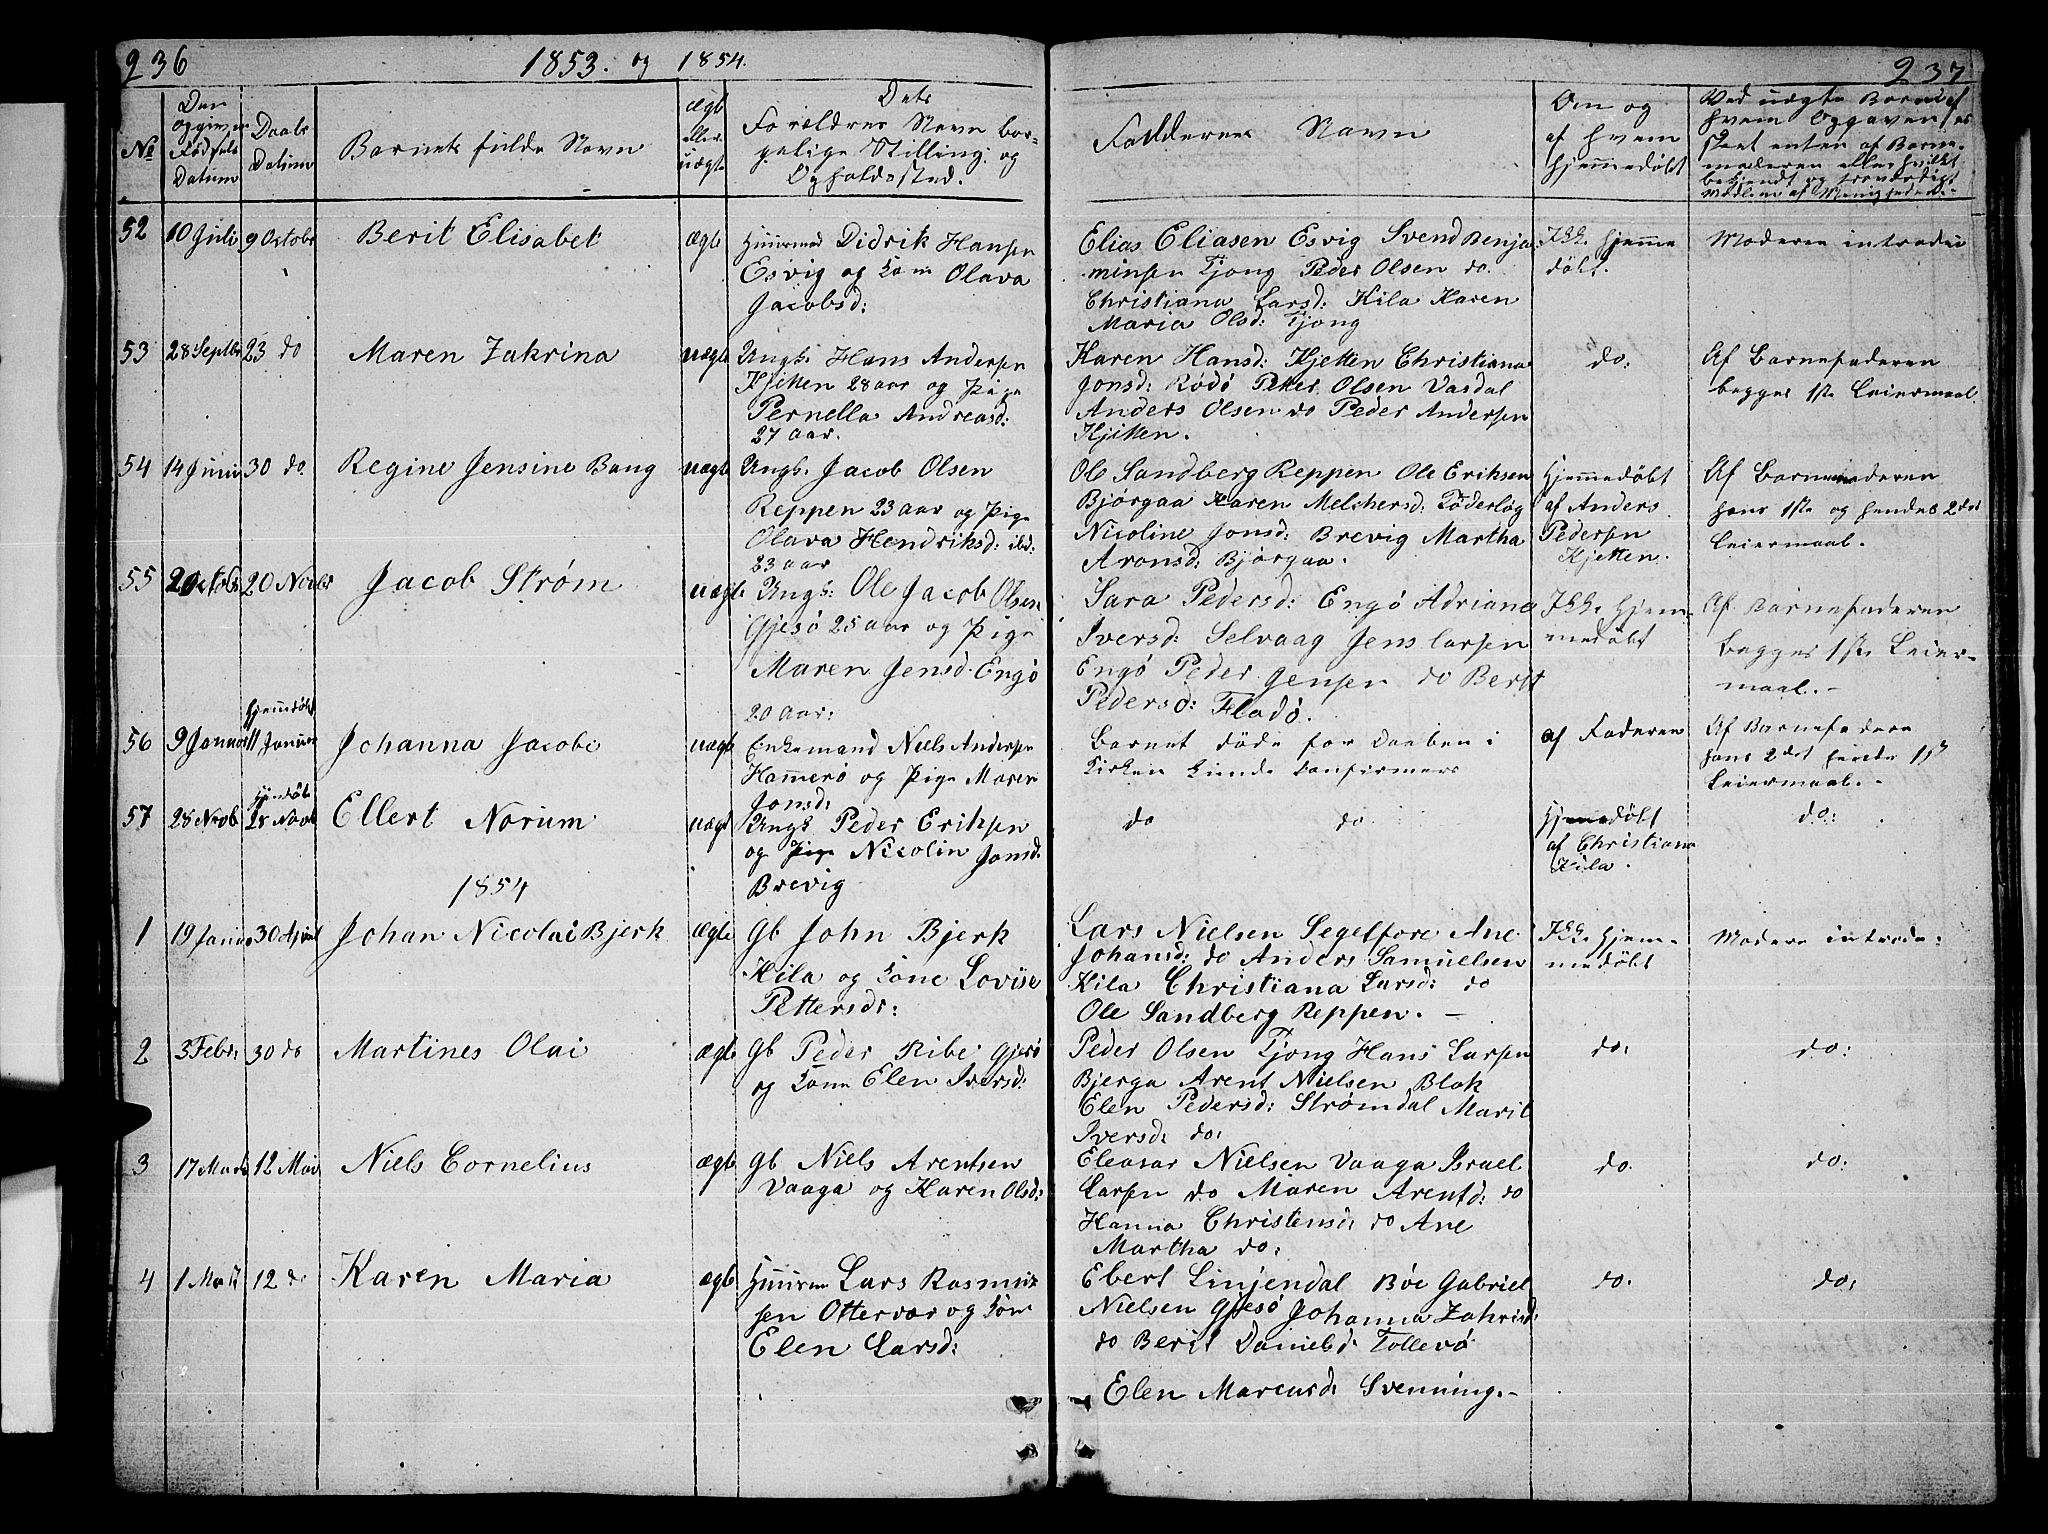 236
1853. og 1854.
237
No
Den opgivne Fødsels Datum
Daabs Datum
Barnets fulde Navn
ægte eller uægte
Dets Forældres Navn borgelige Stilling og Opholdssted.
Faddernes Navn
Om og af hvem hjemmedøbt
Ved uægte Børn af hvem Opgaven er skeet enten af Barnemoderen eller hvilket bekjendt og troværdigt Medlem af Menigheden.
52 10 Juli 9 Octobr Berit Elisabet ægte
Huusmd Didrik Hansen
Esvig og Kone Olava
Jacobsd:
Elias Eliasen Esvig Svend Benja
minsen Tjong Peder Olsen do.
Christiana Larsd: Kila Karen
Maria Olsd: Tjong
Ikke hjemme
døbt.
Moderen introdu
53 28 Septbr 23 do Maren Zakrina uægte
Ungk: Hans Andersen
Kjetten 28 aar og Pige
Pernella Andreasd:
27 aar.
Karen Hansd: Kjetten Christiana
Jonsd: Rødø Petter Olsen Vasdal
Anders Olsen do Peder Andersen
Kjetten.
do:
Af Barnefaderen
begges 1ste Leiermaal
54 14 Juni 30 do. Regine Jensine Bang uægte
Ungk: Jacob Olsen
Reppen 23 aar og Pige
Olava Hendriksd: ibd:
23 aar
Ole Sandberg Reppen Ole Eriksen
Bjørgaa Karen Melchersd: Töderløg
Nicoline Jonsd: Brevig Martha
Aronsd: Bjørgaa.
Hjemmedøbt
af Anders
Pedersen
Kjetten.
Af Barnemoderen
hans 1ste og hendes 2det
Leiermaal.
55 2 Octobr 20 Novbr Jacob Strøm uægte
Ungk: Ole Jacob Olsen
Gjesø 25 aar og Pige
Maren Jensd. Engø
20 aar:
Sara Pedersd: Engø Adriane
Iversd: Selvaag Jens Larsen
Engø Peder Jensen do Berit
Pedersd: Flodø.
Ikke Hjem-
medøbt
Af Barnefaderen
begges 1ste Leier-
maal.-
56 9 Januar
Hjemmdøbt
11 Januar
Johanna Jacobe uægte
Enkemand Niels Andersen
Hammerø og Pige Maren
Jonsd:
Barnet døde før Daaben i
Kirken kunde confirmers
af Faderen
Af Barnefadere
hans 2det hendes 1ste
Leiermaal.-
57 28 Novb
Hjemdøbt
28 Novb
Ellert Norum uægt
Ungk Peder Eriksen
og Pige Nicolin Jonsd:
Brevig
do do
Hjemedøbt
af Christiana
Kila.
do:
1854
1 19 Janua 30 April Johan Nicolai Bjerk ægte
Gb John Bjerk
Kila og Kone Lovise
Pettersdr:
Lars Nielsen Segelfore Ane
Johansd: do Anders Samuelsen
Kila Christiana Larsd: do
Ole Sandberg Reppen. -
Ikke Hjem-
medøbt
Modere introdu:
2 3 Febr: 30 do Martines Olai ægte
Gb Peder Ribe Gjesø
og Kone Elen Iversd:
Peder Olsen Tjong Hans Larsen
Bjerga Arent Nielsen Blok
Elen Pedersd: Strømdal Marit
Iversd: do:
do:
do:
3 17 Marts 12 Mai Niels Cornelius ægte
Gb Niels Arentsen
Vaaga og Karen Olsd:
Eleasar Nielsen Vaaga Israel
Larsen do Maren Arentd: do
Hanna Christensd: do Ane
Martha do:
do.
do:
4 1 12 do Karen Maria ægte
Huusm Lars Rasmus
sen Otterver og Kone
Elen Larsd:
Ebert Linjendal Böe Gabriel
Nielsen Gjesø Johanna Zahrisd:
do Berit Danielsd: Tollevø
Elen Marcusd: Svenning.-
do.
do: